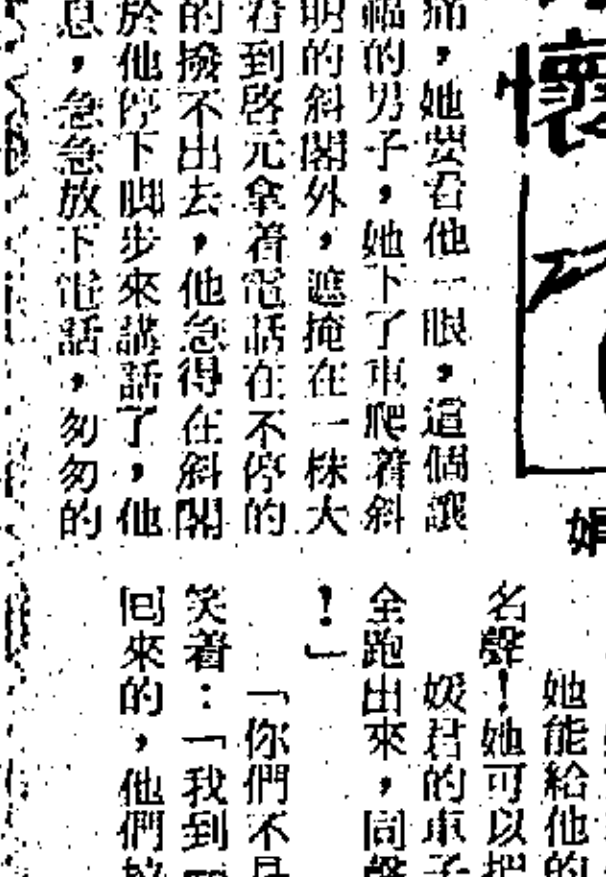 懷
痛，她要看他一眼，這個讓
福的男子，她下了車爬着斜
明的斜閣外，遮掩在一株大
看到啓元拿着電話在不停的
的撥不出去，他急得在斜閣
於他停下脚步來講話了，他
息，急急放下電話，匆匆的
娟
她能給他的
名聲！她可以把
媛君的車子
全跑出來，同聲
！」
「你們不是
笑着：「我到
囘來的，他們